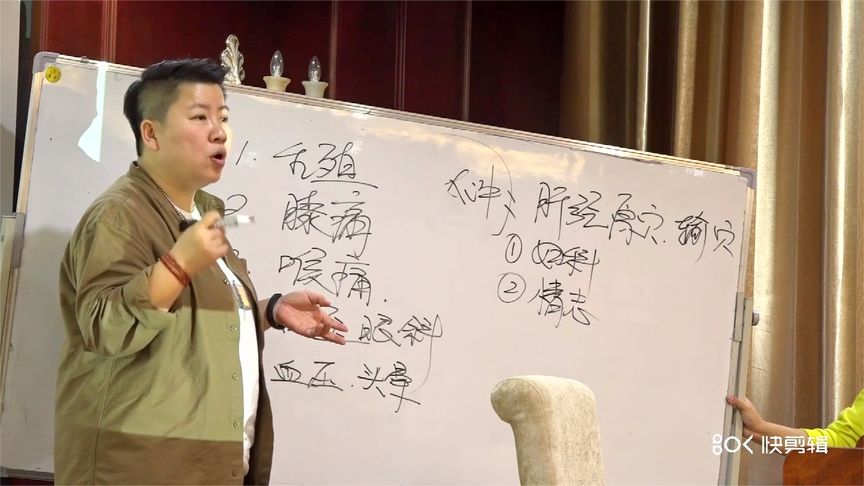 1. 生殖
2 膝痛
喉痛.
眼科
血压.头晕
太冲: 肝经.原穴.输穴
① 妇科
② 情志
快剪辑